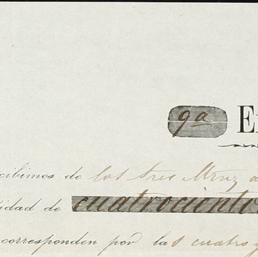 9a E
cibimos de los tres
idad de cuatrocientos
corresponden por las cuatro